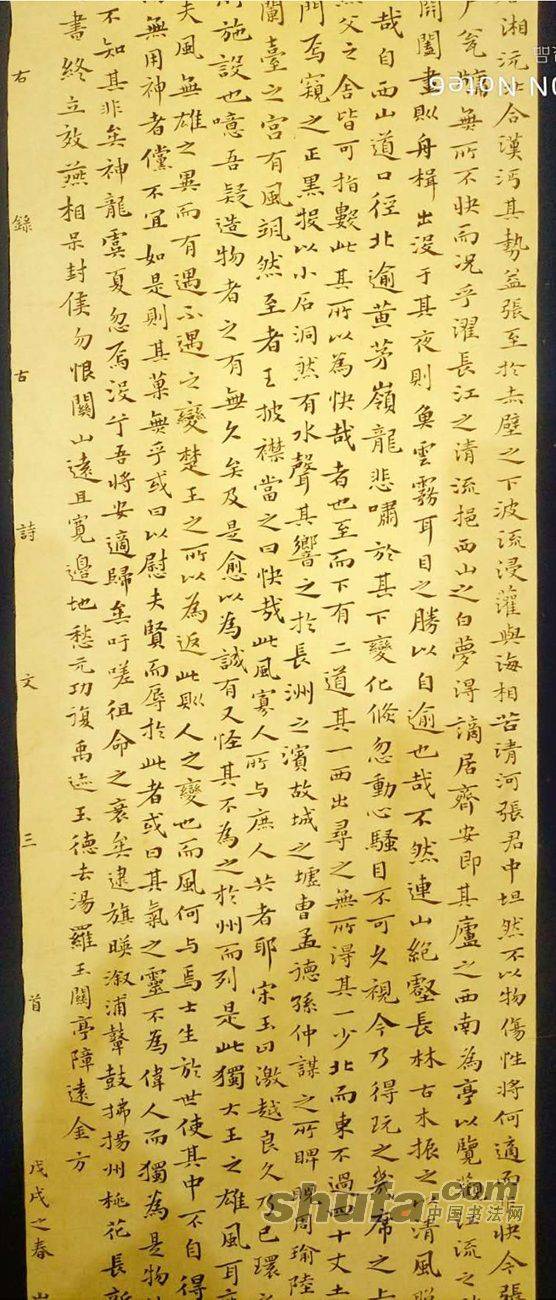 湘沅合漢沔其勢益張至於赤壁之下波流浸灌與海相若清河張君中坦然不以物傷性將何適而非快今張
瓮牖無所不快而況乎濯長江之清流挹西山之白夢得謫居齊安即其廬之西南為亭以覽觀江流之
開闔晝則舟楫出沒于其夜則魚雲霧耳目之勝以自逾也哉不然連山絕壑長林古木振之清風
哉自西山道口徑北逾黃茅嶺龍悲嘯於其下變化倏忽動心騷目不可久視今乃得玩之几席之上
父之舍皆可指數此其所以為快哉者也至而下有二道其一西出尋之無所得其一少北而東不過四十丈土
門焉窺之正黑投以小石洞然有水聲其響之於長洲之濱故城之墟曹孟德孫仲謀之所睥睨周瑜陸
蘭臺之宮有風颯然至者王披襟當之曰快哉此風寡人所与庶人共者耶宋玉曰激越良久乃已環之
施設也噫吾疑造物者之有無久矣及是愈以為誠有又怪其不為之於州而列是此獨大王之雄風耳
夫風無雄之異而有遇不遇之變楚王之所以為返此則人之變也而風何与焉士生於世使其中不自得
無用神者儻不宜如是則其果無乎或曰以慰夫賢而辱於此者或曰其氣之靈不為偉人而獨為是物
不知其非矣神龍虞夏忽焉沒兮吾將安適歸矣吁嗟徂命之衰矣建旗映溆浦鼙鼓拂揚州桃花長新
書終立效燕相呆封侯勿恨關山遠且寬邊地愁元功復禹迹玉德去湯羅玉關亭障遠金方
右錄古詩文三首 戊戌之春
shufa.com
中国书法网